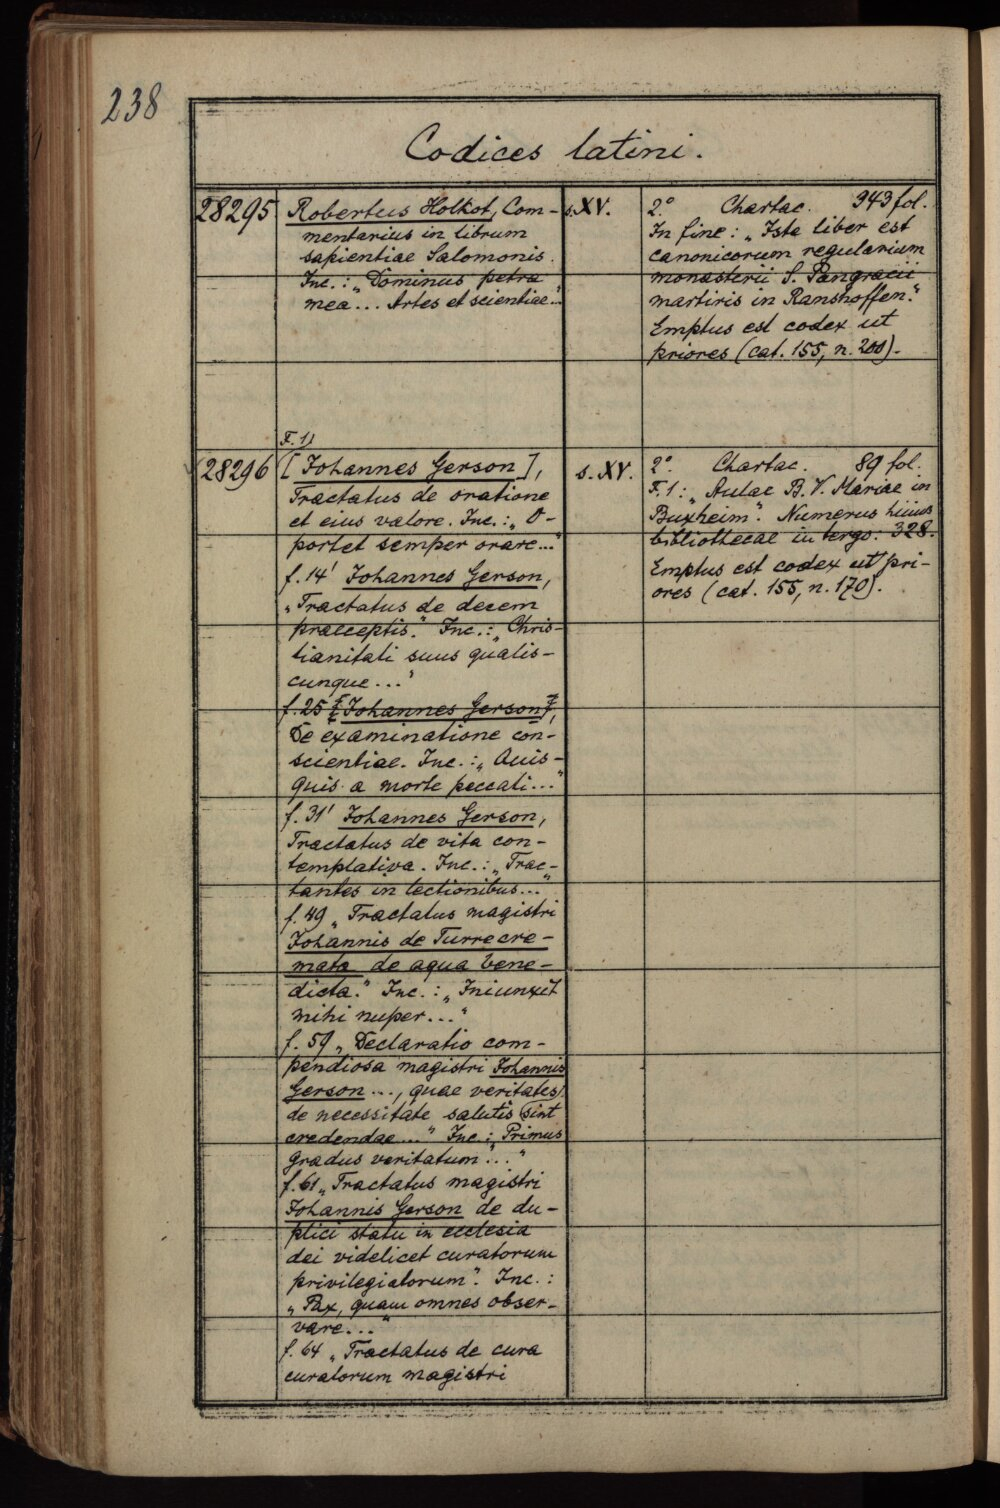 238
Codices latini.
28295
Robertus Holkot, Com-
mentarius in librum
sapientiae Salomonis.
Inc.: „Dominus petra
mea... Artes et scientiae..."
s. XV.
2° Chartac. 943 fol.
In fine: „Iste liber est
canonicorum regularium
monasterii S. Pangracii
martiris in Ranshoffen."
Emptus est codex ut
priores (cat. 155, n. 200).
F. 1)
28296
[Johannes Gerson],
Tractatus de oratione
et eius valore. Inc.: „O-
portet semper orare..."
f. 14' Johannes Gerson,
„Tractatus de decem
praeceptis." Inc.: „Chris-
tianitati suus qualis-
cunque..."
f. 25 [Johannes Gerson],
De examinatione con-
scientiae. Inc.: „Quis-
quis a morte peccati..."
f. 31' Johannes Gerson,
Tractatus de vita con-
templativa. Inc.: „Trac-
tantes in lectionibus..."
f. 49 „Tractatus magistri
Johannis de Turrecre-
mata de aqua bene-
dicta." Inc.: „Iniunxit
mihi nuper..."
f. 59 „Declaratio com-
pendiosa magistri Johannis
Gerson..., quae veritates
de necessitate salutis sint
credendae..." Inc.: „Primus
gradus veritatum..."
f. 61 „Tractatus magistri
Johannis Gerson de du-
plici statu in ecclesia
dei videlicet curatorum
privilegiatorum". Inc.:
„Pax, quam omnes obser-
vare..."
f. 64 „Tractatus de cura
curatorum magistri
s. XV.
2° Chartac. 89 fol.
F. 1: „Aulae B. V. Mariae in
Buxheim". Numerus huius
bibliothecae in tergo: 328.
Emptus est codex ut pri-
ores (cat. 155, n. 170).